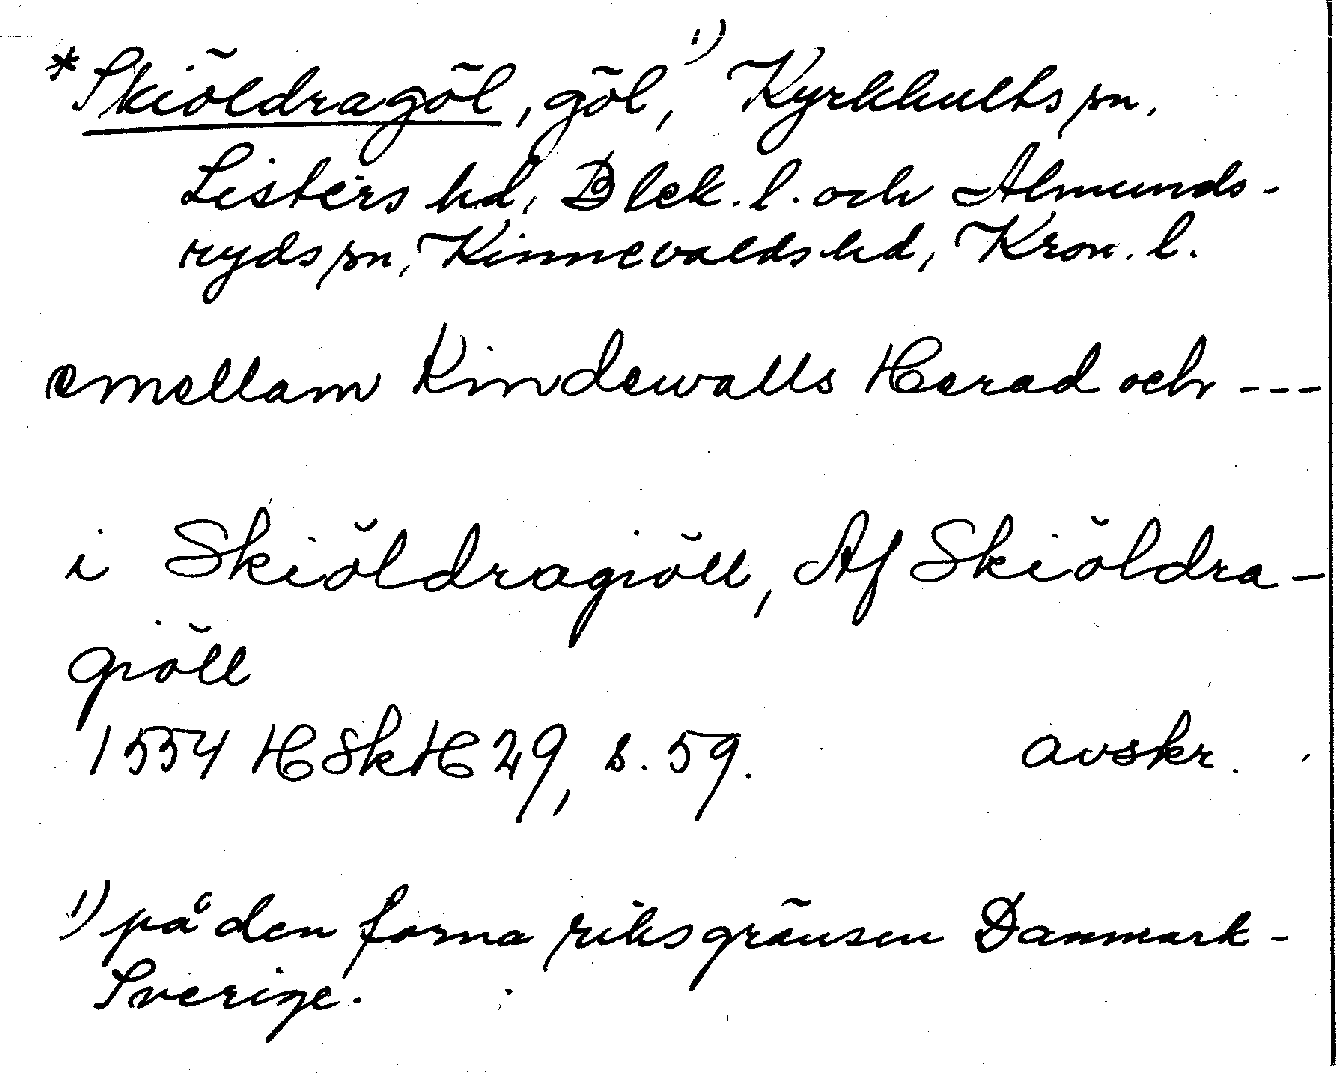 *Skiöldragöl, göl,¹⁾ Kyrkhults sn,
Listers hd, Blek. l. och Almunds-
ryds sn, Kinnevalds hd, Kron. l.
emellam Kindewalls Herad och ---
i Skiöldragiöll, Af Skiöldra-
giöll
1554 HSkH 29, s. 59. avskr.
¹⁾ på den forna riksgränsen Danmark-
Sverige.